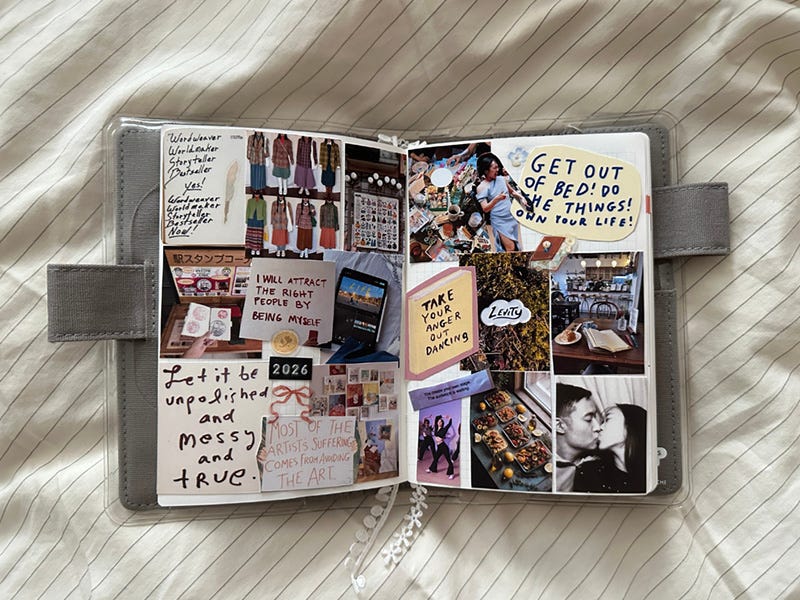 Wordweaver
Worldmaker
Storyteller
Bestseller
yes!
Wordweaver
Worldmaker
Storyteller
Bestseller
Now!
駅スタンプコー
I WILL ATTRACT
THE RIGHT
PEOPLE BY
BEING MYSELF
2026
Let it be
unpolished
and
messy
and
true.
MOST OF THE
ARTIST'S SUFFERING
COMES FROM AVOIDING
THE ART.
GET OUT
OF BED! DO
THE THINGS!
OWN YOUR LIFE!
TAKE
YOUR
ANGER
OUT
DANCING
LEVITY
The audience is waiting.